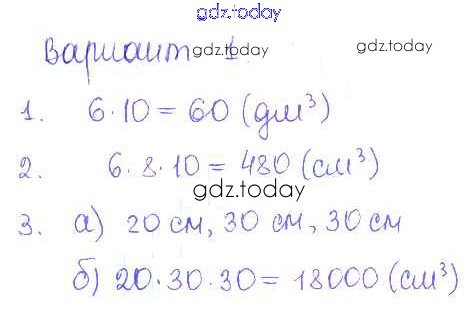 gdz.today
gdz.today
Вариант 1.
gdz.today
1. 6·10 = 60 (дм³)
2. 6·8·10 = 480 (см³)
gdz.today
3. а) 20 см, 30 см, 30 см
б) 20·30·30 = 18000 (см³)